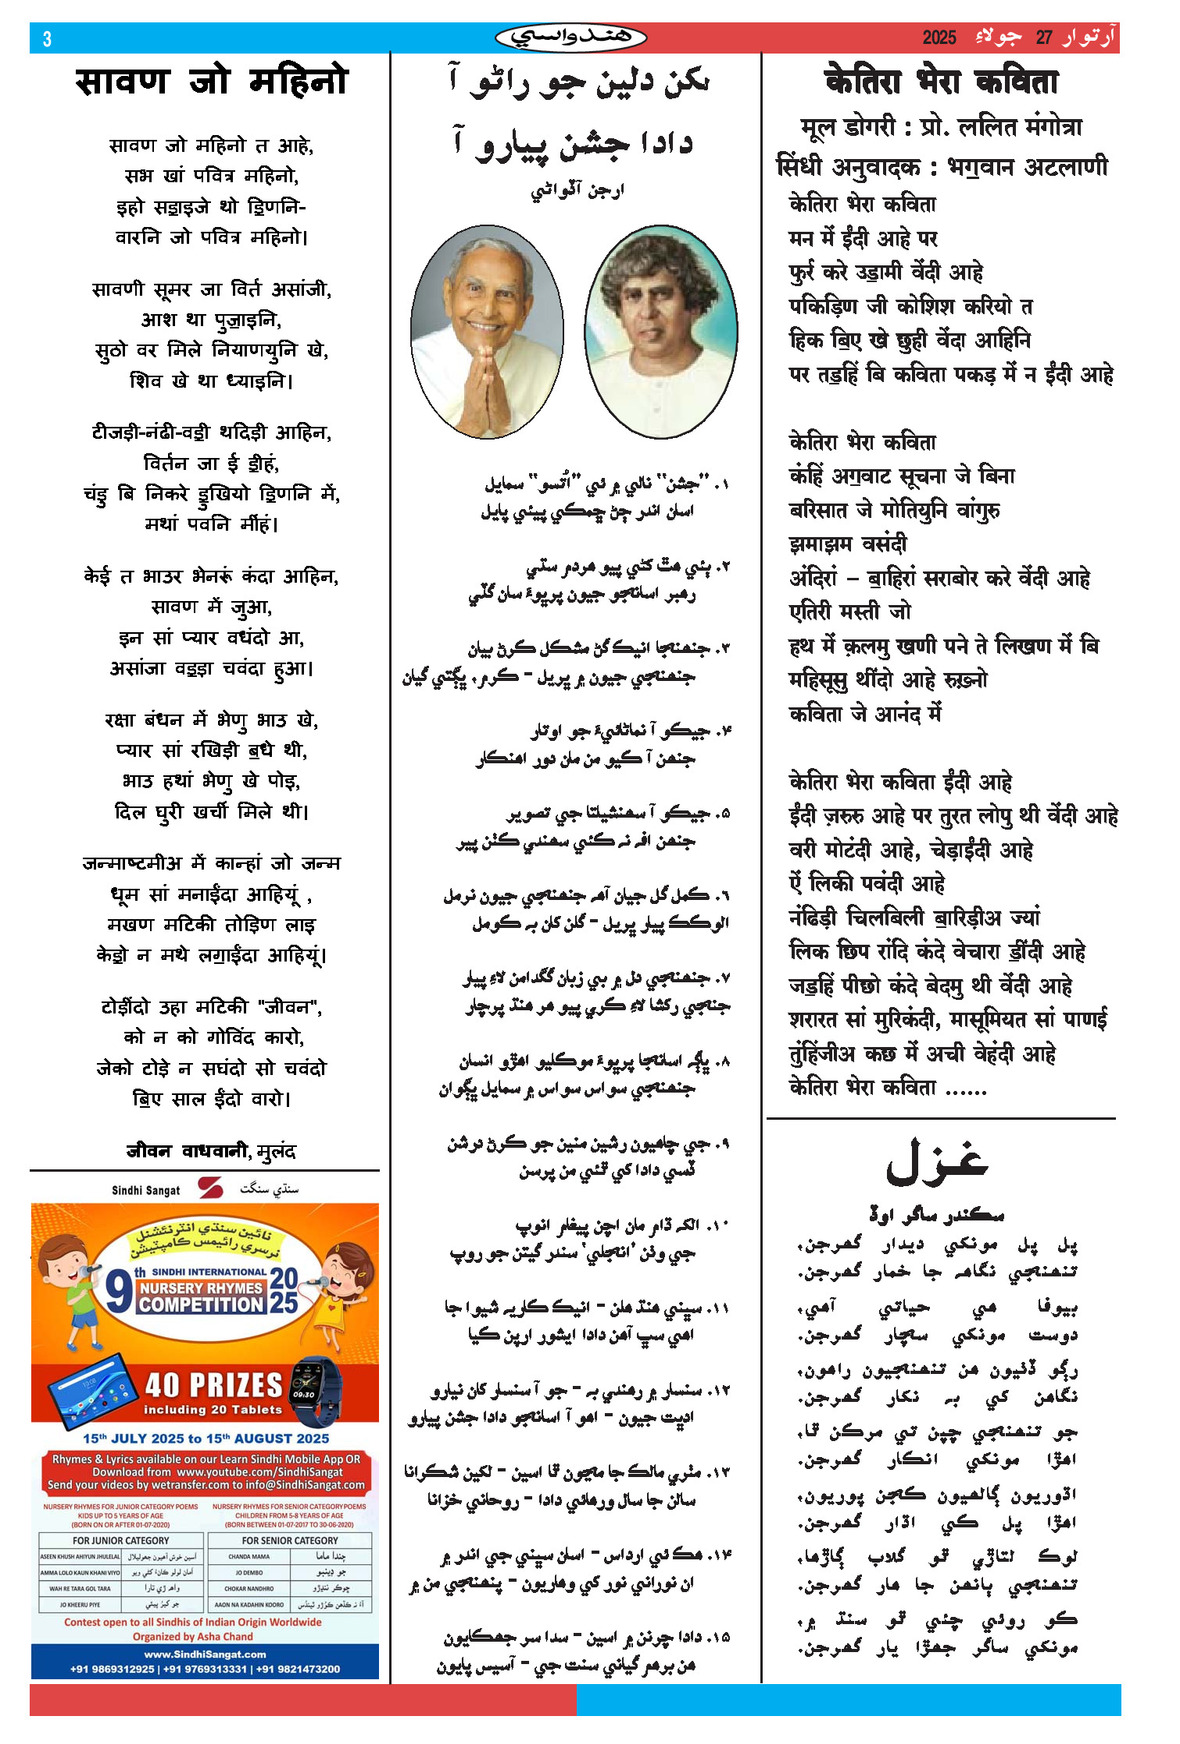 3
هندواسي
آرتوار 27 جولاءِ 2025
सावण जो महिनो
सावण जो महिनो त आहे,
सभ खां पवित्र महिनो,
इहो सॾाइजे थो ॾिणनि-
वारनि जो पवित्र महिनो।
सावणी सूमर जा विर्त असांजी,
आश था पुॼाइनि,
सुठो वर मिले नियाणयुनि खे,
शिव खे था ध्याइनि।
टीजड़ी-नंढी-वॾी थदिड़ी आहिन,
विर्तन जा ई ॾीहं,
चंडु बि निकरे ॾुखियो ॾिणनि में,
मथां पवनि मींहं।
केई त भाउर भेनरूं कंदा आहिन,
सावण में जुआ,
इन सां प्यार वधंदो आ,
असांजा वॾड़ा चवंदा हुआ।
रक्षा बंधन में भेणु भाउ खे,
प्यार सां रखिड़ी ॿधे थी,
भाउ हथां भेणु खे पोइ,
दिल घुरी खर्ची मिले थी।
जन्माष्टमीअ में कान्हां जो जन्म
धूम सां मनाईंदा आहियूं ,
मखण मटिकी तोड़िण लाइ
केॾो न मथे लॻाईंदा आहियूं।
टोड़ींदो उहा मटिकी "जीवन",
को न को गोविंद कारो,
जेको टोड़े न सघंदो सो चवंदो
ॿिए साल ईंदो वारो।
जीवन वाधवानी, मुलंद
Sindhi Sangat
سنڌي سنگت
نائين سنڌي انٽرنئشنل
نرسري رائيمس ڪامپٽيشن
9th SINDHI INTERNATIONAL
NURSERY RHYMES
COMPETITION
2025
40 PRIZES
including 20 Tablets
15th JULY 2025 to 15th AUGUST 2025
Rhymes & Lyrics available on our Learn Sindhi Mobile App OR
Download from www.youtube.com/SindhiSangat
Send your videos by wetransfer.com to info@SindhiSangat.com
NURSERY RHYMES FOR JUNIOR CATEGORY POEMS
KIDS UP TO 5 YEARS OF AGE
(BORN ON OR AFTER 01-07-2020)
FOR JUNIOR CATEGORY
ASEEN KHUSH AHIYUN JHULELAL اسين خوش آهيون جھوليلال
AMMA LOLO KAUN KHANI VIYO امان لولو ڪانءُ کڻي ويو
WAH RE TARA GOL TARA واھ ڙي تارا
JO KHEERU PIYE جو کير پيئي
NURSERY RHYMES FOR SENIOR CATEGORY POEMS
CHILDREN FROM 5-8 YEARS OF AGE
(BORN BETWEEN 01-07-2017 TO 30-06-2020)
FOR SENIOR CATEGORY
CHANDA MAMA چندا ماما
JO DEMBO جو ڏيڀو
CHOKAR NANDHRO ڇوڪر ننڍڙو
AAON NA KADAHIN KOORO آءٌ نہ ڪڏهن ڪوڙو
Contest open to all Sindhis of Indian Origin Worldwide
Organized by Asha Chand
www.SindhiSangat.com
+91 9869312925 | +91 9769313331 | +91 9821473200
لکن دلين جو راڻو آ
دادا جشن پيارو آ
ارجن آڏواڻي
۱. "جشن" نالي ۾ ئي "اُتسو" سمايل
اسان اندر ڄڻ چمڪي پيئي پايل
۲. ٻئي هٿ کڻي پيو هردم سڏي
رهبر اسانجو جيون پرڀوءَ سان گڏي
۳. جنهنجا انيڪ گڻ مشڪل ڪرڻ بيان
جنهنجي جيون ۾ پريل - ڪرم، ڀڳتي گيان
۴. جيڪو آ نماڻائيءَ جو اوتار
جنهن آ ڪيو من مان دور اهنڪار
۵. جيڪو آ سهنشيلتا جي تصوير
جنهن اف نہ ڪئي سهندي ڪٿن پير
۶. ڪمل گل جيان آهہ جنهنجي جيون نرمل
الوڪڪ پيار پريل - گلن کان بہ ڪومل
۷. جنهنجي دل ۾ بي زبان گگدامن لاءِ پيار
جنجي رکشا لاءِ ڪري پيو هر هنڌ پرچار
۸. ڀاڳہ اسانجا پرڀوءَ موڪليو اهڙو انسان
جنهنجي سواس سواس ۾ سمايل ڀڳوان
۹. جي چاهيون رشين منين جو ڪرڻ درشن
ڏسي دادا کي ٿئي من پرسن
۱۰. الکہ ڌام مان اچن پيغام انوپ
جي وڻن 'انجلي' سندر گيتن جو روپ
۱۱. سڀني هنڌ هلن - انيڪ ڪاريہ شيوا جا
اهي سڀ آهن دادا ايشور ارپن ڪيا
۱۲. سنسار ۾ رهندي بہ - جو آ سنسار کان نيارو
اديت جيون - اهو آ اسانجو دادا جشن پيارو
۱۳. مٺڙي مالڪ جا مڃون ٿا اسين - لکين شڪرانا
سالن جا سال ورهائي دادا - روحاني خزانا
۱۴. هڪ ئي ارداس - اسان سڀني جي اندر ۾
ان نوراني نور کي وهاريون - پنهنجي من ۾
۱۵. دادا چرنن ۾ اسين - سدا سر جهڪايون
هن برهم گياني سنت جي - آسيس پايون
केतिरा भेरा कविता
मूल डोगरी : प्रो. ललित मंगोत्रा
सिंधी अनुवादक : भग॒वान अटलाणी
केतिरा भेरा कविता
मन में ईंदी आहे पर
फुर्र करे उॾामी वेंदी आहे
पकिड़िण जी कोशिश करियो त
हिक ॿिए खे छुही वेंदा आहिनि
पर तॾहिं बि कविता पकड़ में न ईंदी आहे
केतिरा भेरा कविता
कंहिं अॻवाट सूचना जे बिना
बरिसात जे मोतियुनि वांगुरु
झमाझम वसंदी
अंदिरां – ॿाहिरां सराबोर करे वेंदी आहे
एतिरी मस्ती जो
हथ में क़लमु खणी पने ते लिखण में बि
महिसूसु थींदो आहे रुख़्नो
कविता जे आनंद में
केतिरा भेरा कविता ईंदी आहे
ईंदी ज़रुरु आहे पर तुरत लोपु थी वेंदी आहे
वरी मोटंदी आहे, चेड़ाईंदी आहे
ऐं लिकी पवंदी आहे
नंढिड़ी चिलबिली ॿारिड़ीअ ज्यां
लिक छिप रांदि कंदे वेचारा ॾींदी आहे
जॾहिं पीछो कंदे बेदमु थी वेंदी आहे
शरारत सां मुरिकंदी, मासूमियत सां पाणई
तुंहिंजीअ कछ में अची वेहंदी आहे
केतिरा भेरा कविता ......
غزل
سڪندر ساگر اوڏ
پل پل مونکي ديدار گهرجن،
تنهنجي نگاهہ جا خمار گهرجن.
بيوفا هي حياتي آهي،
دوست مونکي سچار گهرجن.
رڳو ڏٺيون هن تنهنجيون راهون،
نگاهن کي بہ نکار گهرجن.
جو تنهنجي چپن تي مرڪن ٿا،
اهڙا مونکي انڪار گهرجن.
اڌوريون ڳالهيون ڪجن پوريون،
اهڙا پل کي اڌار گهرجن.
لوڪ لتاڙي ٿو گلاب ڳاڙها،
تنهنجي ٻانهن جا هار گهرجن.
ڪو روئي چئي ٿو سنڌ ۾،
مونکي ساگر جهڙا يار گهرجن.